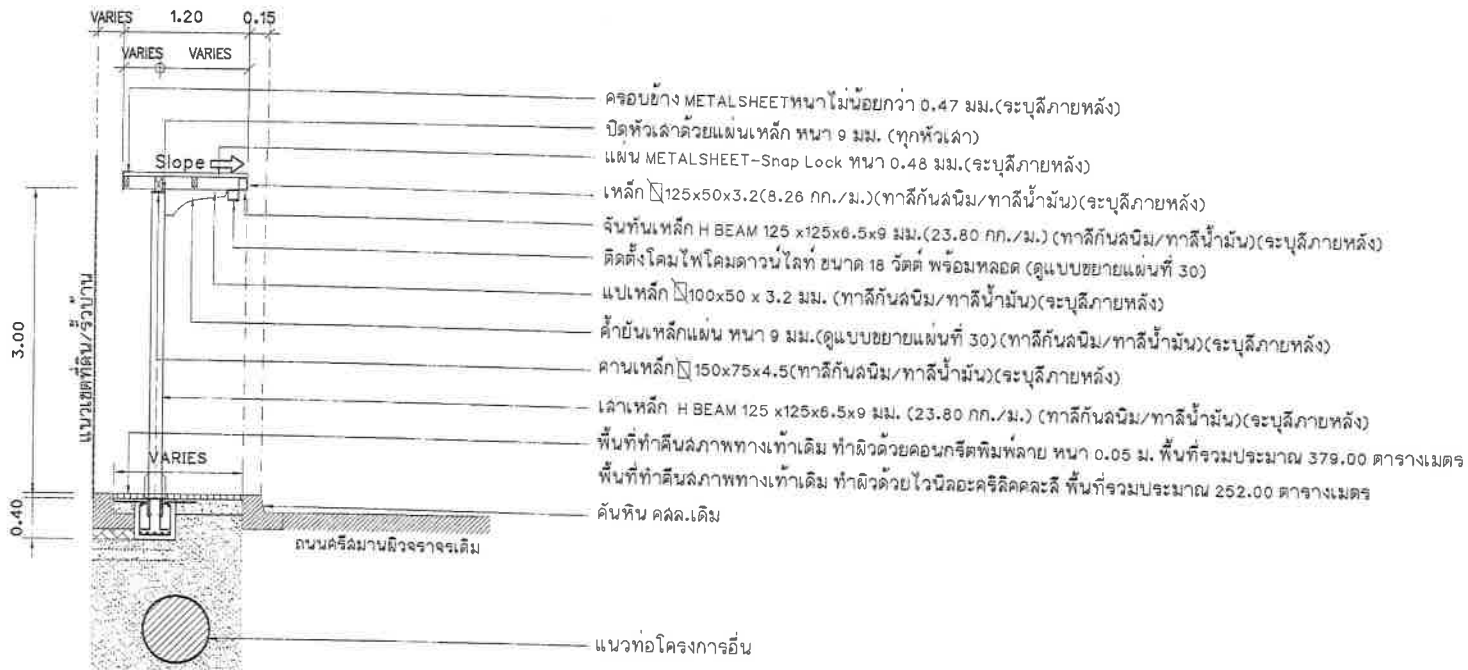 VARIES 1.20 0.15
VARIES VARIES
ครอบข้าง METALSHEETหนาไม่น้อยกว่า 0.47 มม.(ระบุสีภายหลัง)
ปิดหัวเสาด้วยแผ่นเหล็ก หนา 9 มม. (ทุกหัวเสา)
Slope
แผ่น METALSHEET-Snap Lock หนา 0.48 มม.(ระบุสีภายหลัง)
เหล็ก 125x50x3.2(8.26 กก./ม.)(ทาสีกันสนิม/ทาสีน้ำมัน)(ระบุสีภายหลัง)
จันทันเหล็ก H BEAM 125 x125x6.5x9 มม.(23.80 กก./ม.) (ทาสีกันสนิม/ทาสีน้ำมัน)(ระบุสีภายหลัง)
ติดตั้งโคมไฟโคมดาวน์ไลท์ ขนาด 18 วัตต์ พร้อมหลอด (ดูแบบขยายแผ่นที่ 30)
แปเหล็ก 100x50 x 3.2 มม. (ทาสีกันสนิม/ทาสีน้ำมัน)(ระบุสีภายหลัง)
ค้ำยันเหล็กแผ่น หนา 9 มม.(ดูแบบขยายแผ่นที่ 30)(ทาสีกันสนิม/ทาสีน้ำมัน)(ระบุสีภายหลัง)
คานเหล็ก 150x75x4.5(ทาสีกันสนิม/ทาสีน้ำมัน)(ระบุสีภายหลัง)
เสาเหล็ก H BEAM 125 x125x6.5x9 มม. (23.80 กก./ม.) (ทาสีกันสนิม/ทาสีน้ำมัน)(ระบุสีภายหลัง)
3.00
แนวเขตที่ดิน/รั้วบ้าน
VARIES
พื้นที่ทำคืนสภาพทางเท้าเดิม ทำผิวด้วยคอนกรีตพิมพ์ลาย หนา 0.05 ม. พื้นที่รวมประมาณ 379.00 ตารางเมตร
พื้นที่ทำคืนสภาพทางเท้าเดิม ทำผิวด้วยไวนิลอะคริลิคคละสี พื้นที่รวมประมาณ 252.00 ตารางเมตร
0.40
คันหิน คสล.เดิม
ถนนศรีสมานผิวจราจรเดิม
แนวท่อโครงการอื่น